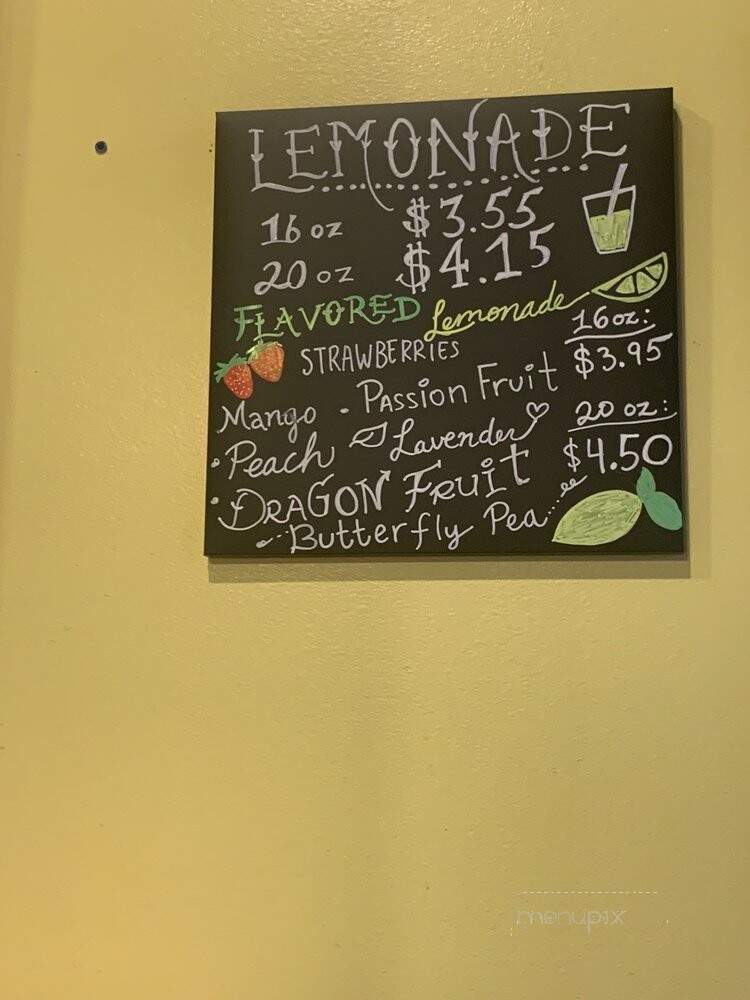 LEMONADE
16 oz $3.55
20 oz $4.15
FLAVORED Lemonade
STRAWBERRIES
16oz:
$3.95
Mango · Passion Fruit
· Peach Lavender
20 oz:
$4.50
· DRAGON Fruit
Butterfly Pea
menupix